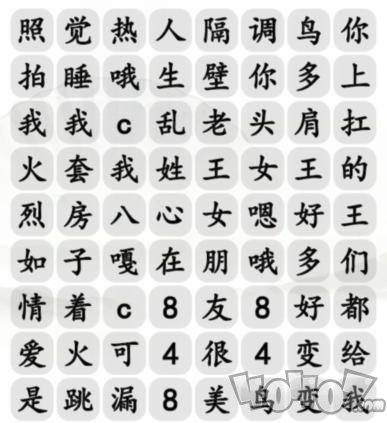 照觉热人隔调鸟你
拍睡哦生壁你多上
我我c乱老头肩扛
火套我姓王女王的
烈房八心女嗯好王
如子嘎在朋哦多们
情着c8友8好都
爱火可4很4变给
是跳漏8美鸟变我